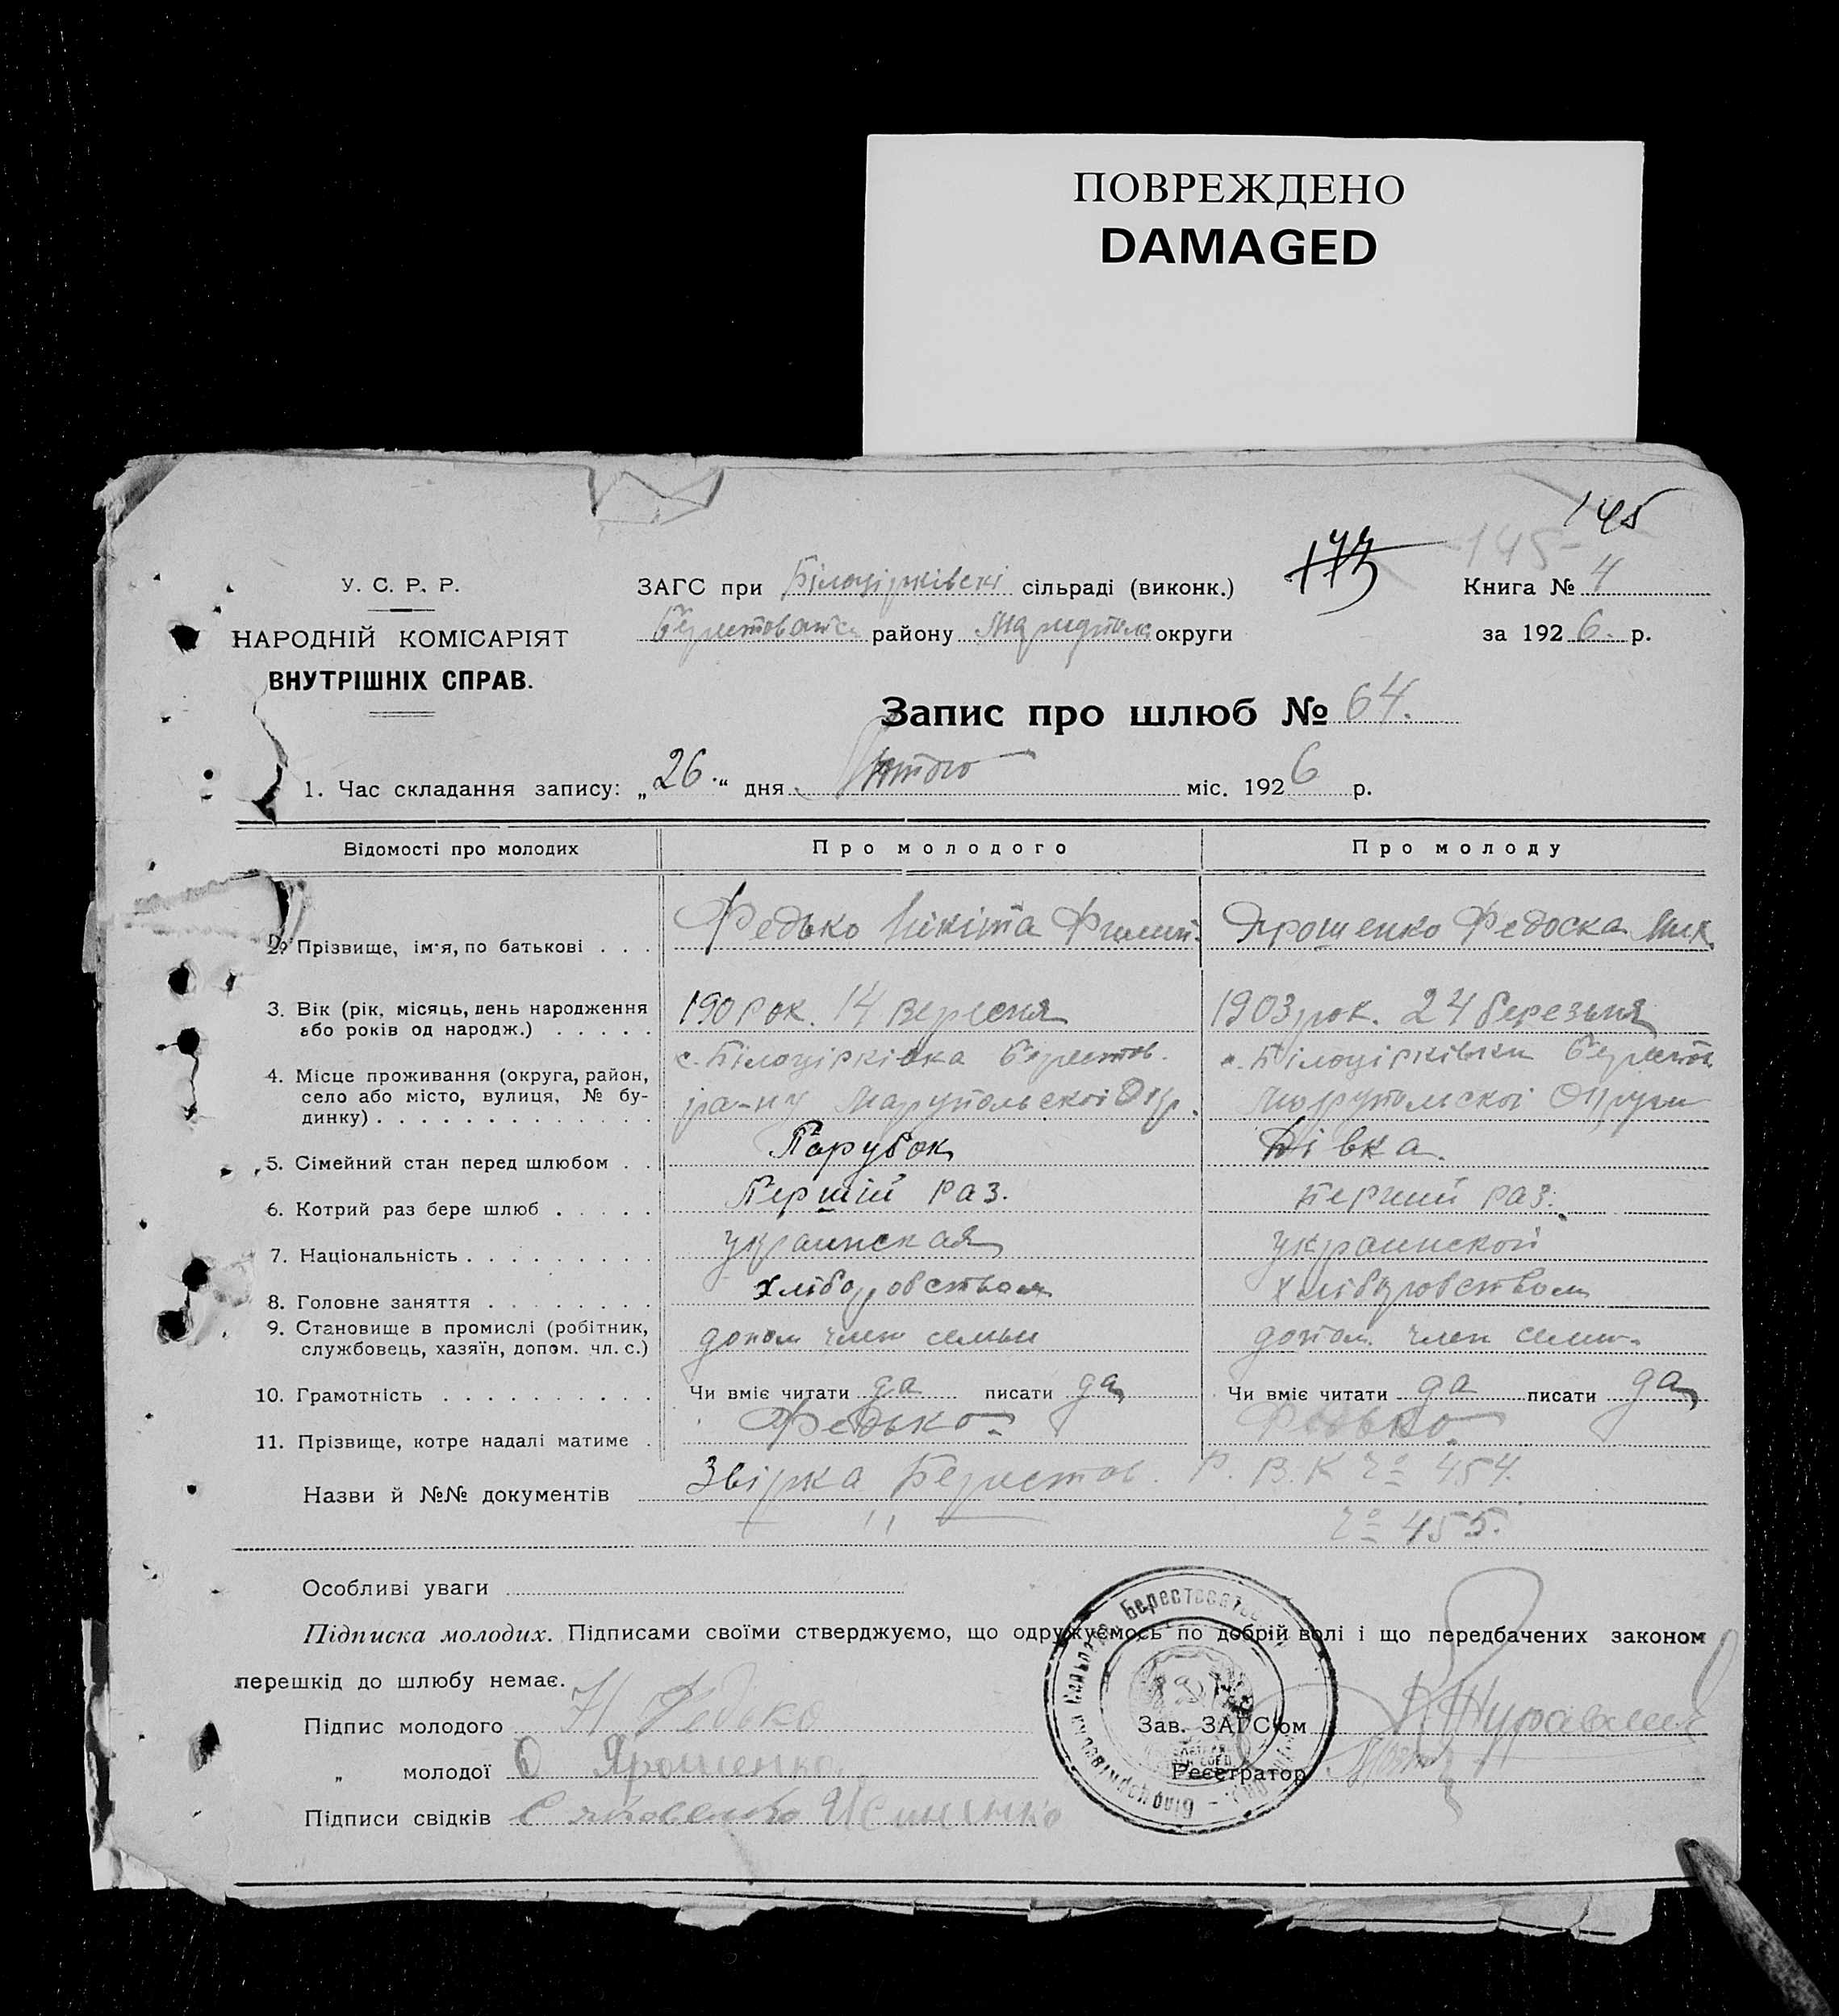 ПОВРЕЖДЕНО
DAMAGED
145
173 145
У. С. Р. Р. ЗАГС при Білоцірківскі сільраді (виконк.) Книга № 4
НАРОДНІЙ КОМІСАРІЯТ району округи за 192 6. р.
ВНУТРІШНІХ СПРАВ.
Запис про шлюб № 64.
1. Час складання запису: „26.“ дня Лютого міс. 192 6 р.
Відомості про молодих Про молодого Про молоду
2. Прізвище, ім'я, по батькові . . . Федько Нікіта Филип. Ярошенко Федоска Мик.
3. Вік (рік, місяць, день народження 190 рок. 14 вересня 1903 рок. 24 березня
або років од народж.) . . . . .
4. Місце проживання (округа, район, с. Білоцірківка Берестов. с. Білоцірківки Берестов
село або місто, вулиця, № бу- ра-ну Округи
динку) . . . . . . . . . . . . .
5. Сімейний стан перед шлюбом . . Парубок Дівка.
6. Котрий раз бере шлюб . . . . . Перший раз. Перший раз.
7. Національність . . . . . . . . . украинская украинской
8. Головне заняття . . . . . . . . хлібороbством хліборобством
9. Становище в промислі (робітник, допом член семьи допом. член семи.
службовець, хазяїн, допом. чл. с.)
10. Грамотність . . . . . . . . . . Чи вміє читати да писати да Чи вміє читати да писати да
11. Прізвище, котре надалі матиме . Федько. Федько.
Назви й №№ документів Звірка Берестов. Р. В. К № 454.
" № 455.
Особливі уваги
Підписка молодих. Підписами своїми стверджуємо, що одружуємось по добрій волі і що передбачених законом
перешкід до шлюбу немає.
Підпис молодого Н Федько Зав. ЗАГС'ом
„ молодої Ярошенко Реєстратор
Підписи свідків